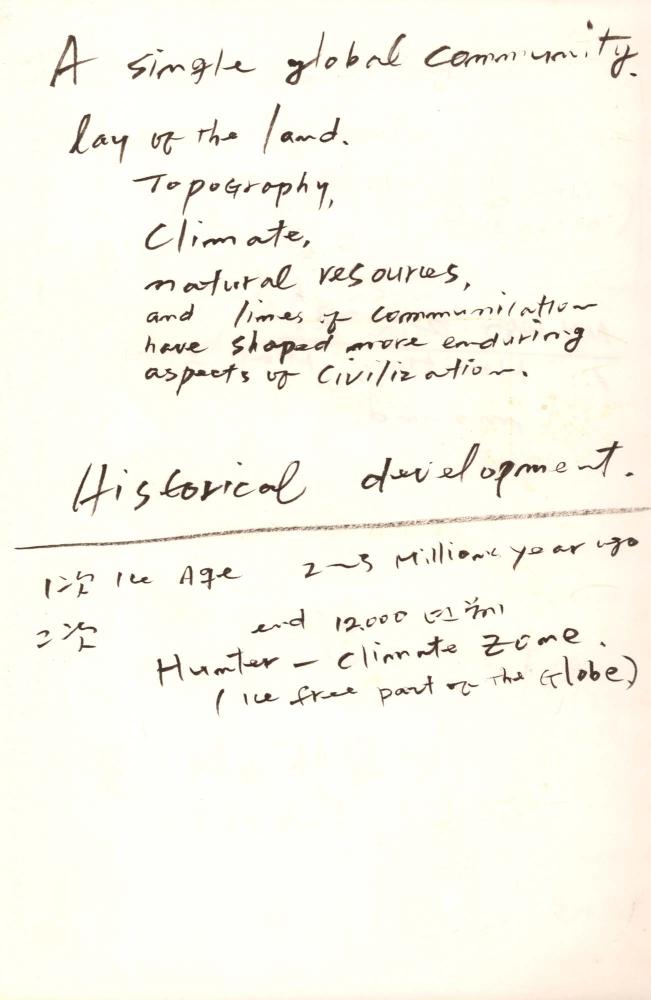 A single global community.
lay of the land.
Topography,
Climate,
natural resources,
and lines of communication
have shaped more enduring
aspects of civilization.
Historical development.
1次 Ice Age 2~3 Millions year ago
二次 end 12.000 년前
Hunter - Climate Zone.
(Ice free part of the Globe)